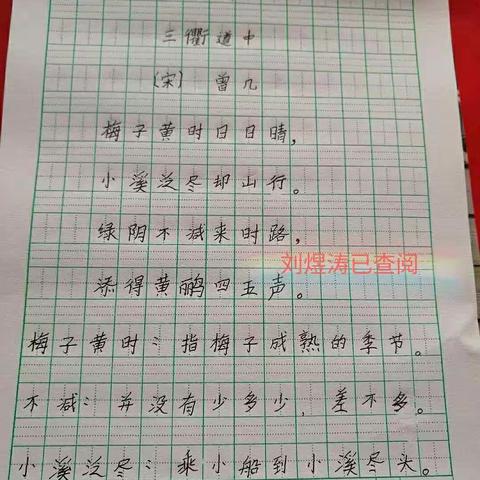 三衢道中
(宋) 曾几
梅子黄时日日晴,
小溪泛尽却山行。
绿阴不减来时路,
刘煜涛已查阅
添得黄鹂四五声。
梅子黄时:指梅子成熟的季节。
不减:并没有少多少,差不多。
小溪泛尽:乘小船到小溪尽头。